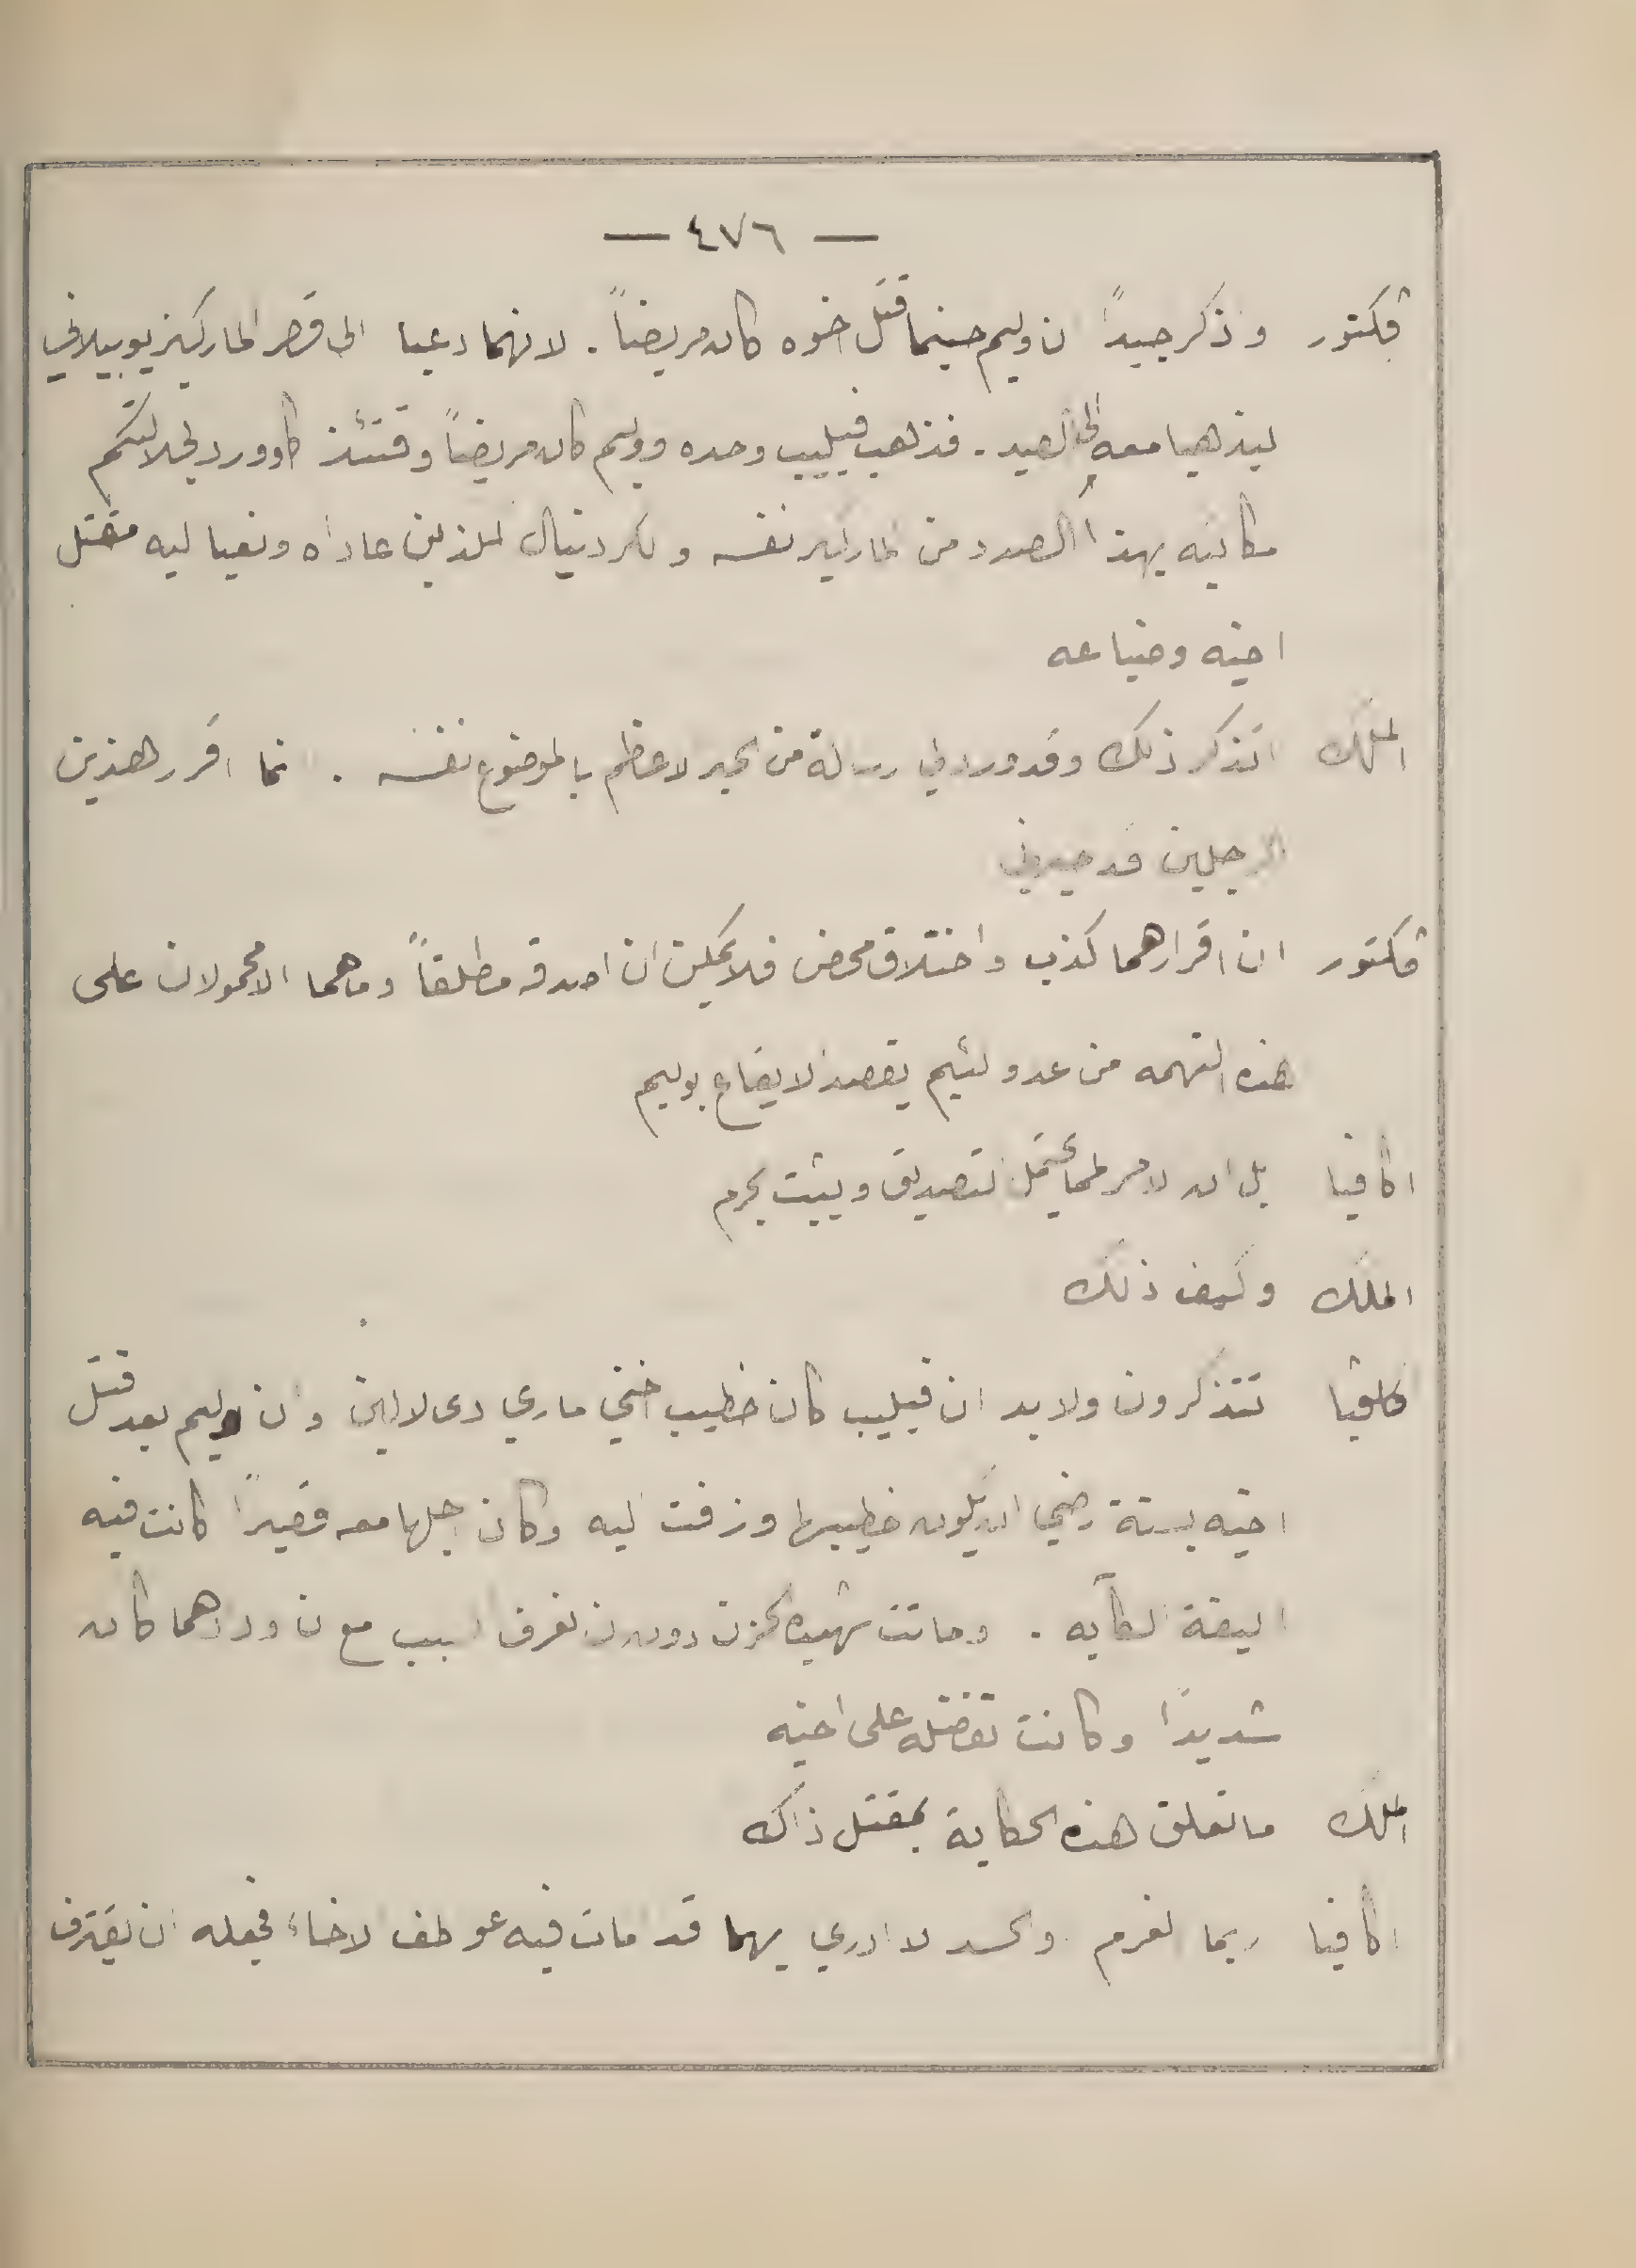 — ٤٧٦ —
ڤكتور واذكر جيداً ان وليم حينما قتل اخوه كان مريضاً . لانهما دعيا الى قصر الماركيز بوبيلاني
ليذهبا معه الى الصيد . فذهب فيليب وحده ووليم كان مريضاً وقتئذ كما وورد لجلالتكم
مكاتبه بهذا الصدد من الماركيز نفسه والكردينال اللذين عاداه ونعيا اليه مقتل
اخيه وضياعه
الملك اتذكر ذلك وقد ورد لي رسالة من الحبر الاعظم بالموضوع نفسه . انما اقرار هذين
الرجلين قد حيرني
ڤكتور ان اقرارهما كذب واختلاق محض فلا يمكن ان اصدقه مطلقاً وما هما الا محمولان على
هذه التهمه من عدو لئيم يقصد الايقاع بوليم
اكافيا بل ان الامر لمما يحتمل التصديق ويثبت الجرم
الملك وكيف ذلك
اكافيا تتذكرون ولابد ان فيليب كان خطيب اختي ماري دى لالين وان وليم بعد قتل
اخيه بسنة رضي ان يكون خطيبها وزفت اليه وكان اجلها معه قصيراً كانت فيه
اليفة الكآبه . وماتت شهيدة الحزن دون ان نعرف السبب مع ان ودادهما كان
شديداً وكانت تفضله على اخيه
الملك ما تعلق هذه الحكاية بمقتل ذاك
اكافيا ربما الغرم والحسد لا ادري ايهما قد مات فيه عواطف الاخاء فجعله ان يقترف